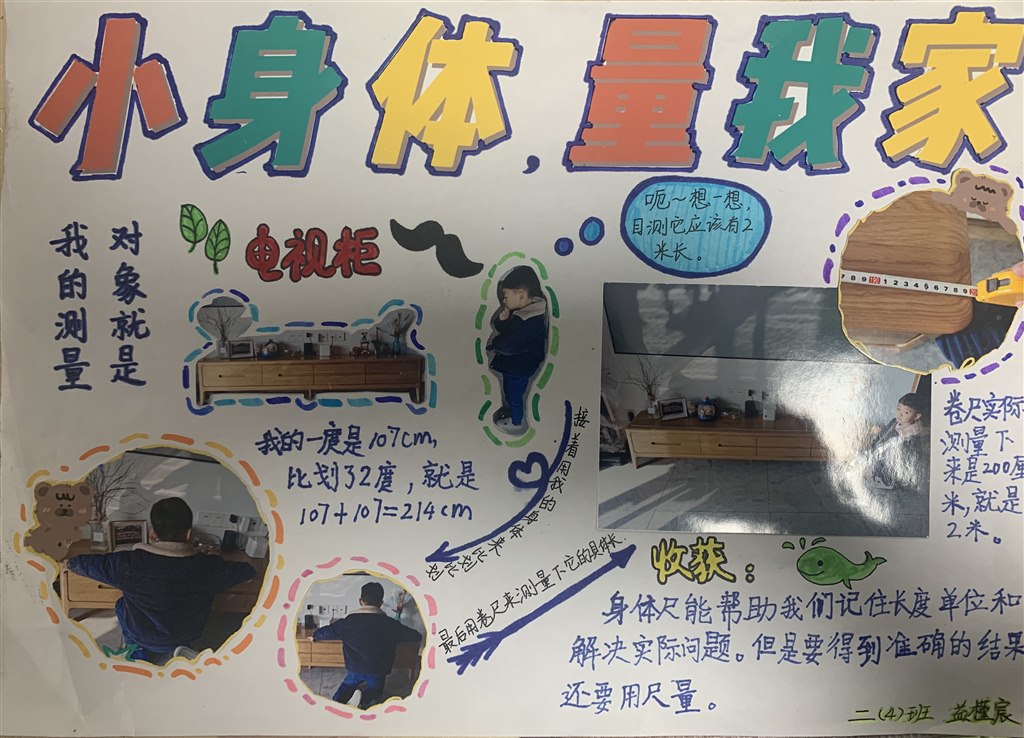 小身体，量我家
我的测量
对象就是
电视柜
呃～想一想，
目测它应该有2
米长。
我的一庹是107cm，
比划了2度，就是
107+107=214cm
接着用我的身体来比划比划
最后用卷尺来测量下它的具体长
卷尺实际
测量下
来是200厘
米，就是
2米。
收获：
身体尺能帮助我们记住长度单位和
解决实际问题。但是要得到准确的结果
还要用尺量。
二（4）班